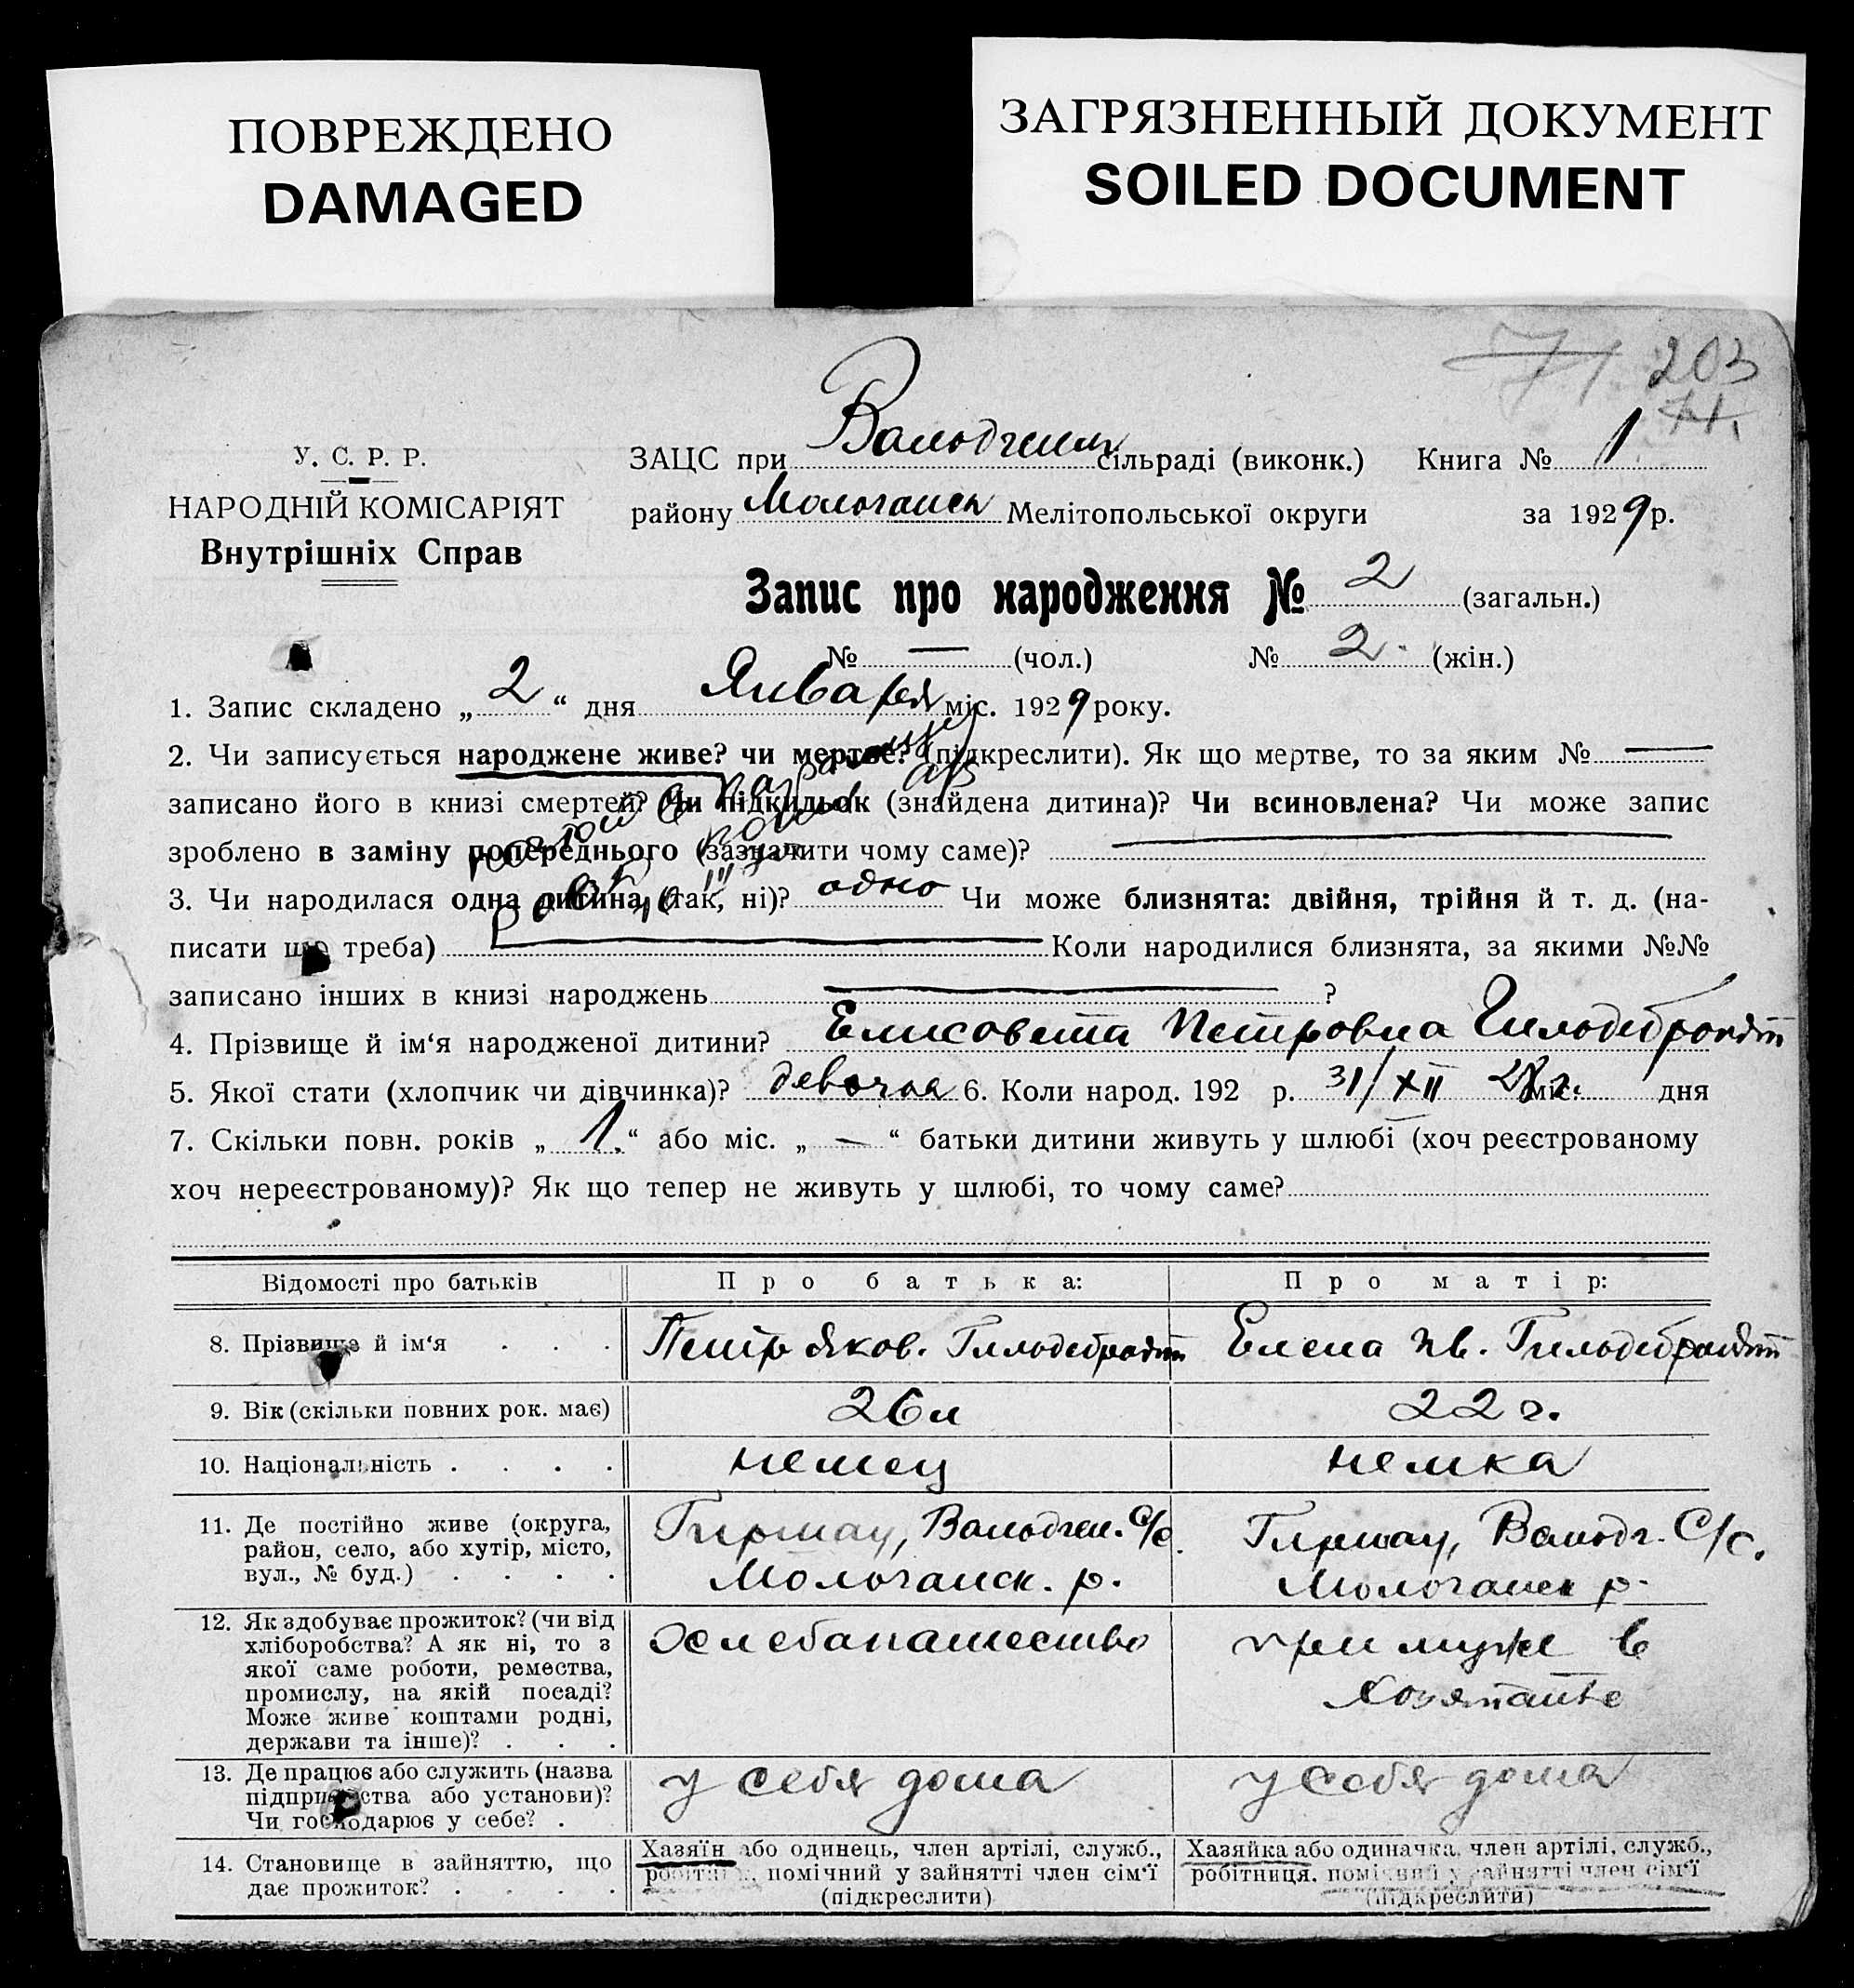 ПОВРЕЖДЕНО
DAMAGED
ЗАГРЯЗНЕННЫЙ ДОКУМЕНТ
SOILED DOCUMENT
71 203
У. С. Р. Р.
НАРОДНІЙ КОМІСАРІЯТ
Внутрішніх Справ
ЗАЦС при Вальдгейм сільраді (виконк.) Книга № 1
району Молочанск Мелітопольської округи за 1929 р.
Запис про народження № 2 (загальн.)
№ — (чол.) № 2. (жін.)
1. Запис складено „ 2 “ дня Января міс. 1929 року.
2. Чи записується народжене живе? чи мертве? (підкреслити). Як що мертве, то за яким № —
записано його в книзі смертей? Чи підкидьок (знайдена дитина)? Чи всиновлена? Чи може запис
зроблено в заміну попереднього (зазначити чому саме)?
3. Чи народилася одна дитина, (так, ні)? одно Чи може близнята: двійня, трійня й т. д. (на-
писати що треба) — Коли народилися близнята, за якими №№
записано інших в книзі народжень — ?
4. Прізвище й ім‘я народженої дитини? Елисовета Петровна Гильдебрандт
5. Якої стати (хлопчик чи дівчинка)? девочка 6. Коли народ. 192 р. 31/XII 28 г. міс. дня
7. Скільки повн. років „ 1. “ або міс. „ — “ батьки дитини живуть у шлюбі (хоч реєстрованому
хоч нереєстрованому)? Як що тепер не живуть у шлюбі, то чому саме?
Відомості про батьків Про батька: Про матір:
8. Прізвище й ім‘я . . . Петр Яков. Гильдебрандт Елена Ив. Гильдебрандт
9. Вік (скільки повних рок. має) 26 л 22 г.
10. Національність . . . . немец немка
11. Де постійно живе (округа,
район, село, або хутір, місто,
вул., № буд.) . . . .
Гиршау, Вальдгей. С/с.
Молочанск. р.
Гиршау, Вальдг. С/с.
Молочанск р.
12. Як здобуває прожиток? (чи від
хліборобства? А як ні, то з
якої саме роботи, ремества,
промислу, на якій посаді?
Може живе коштами родні,
держави та інше)? . . .
хлебапашество
при муже в
хозяйстве
13. Де працює або служить (назва
підприємства або установи)?
Чи господарює у себе? .
у себя дома
у себя дома
14. Становище в зайняттю, що
дає прожиток? . . . .
Хазяїн або одинець, член артілі, служб.,
робітник, помічний у зайнятті член сім‘ї
(підкреслити)
Хазяйка або одиначка, член артілі, служб.,
робітниця, помічний у зайнятті член сім‘ї
(підкреслити)